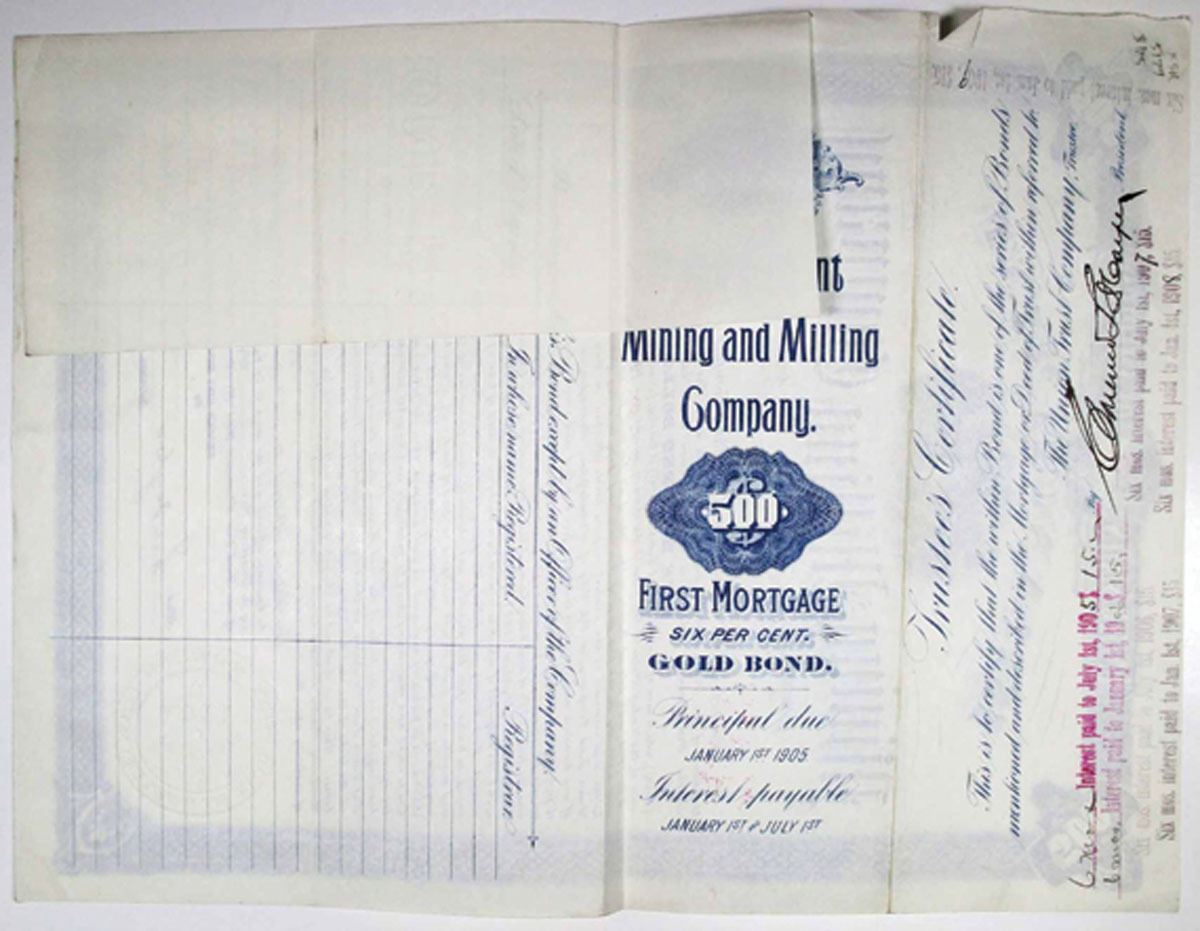 nt
Mining and Milling
Company.
500
FIRST MORTGAGE
SIX PER CENT.
GOLD BOND.
Principal due
JANUARY 1ST 1905
Interest payable
JANUARY 1ST & JULY 1ST
Trustee's Certificate.
This is to certify that the within Bond is one of the series of Bonds
mentioned and described in the Mortgage or Deed of Trust within referred to.
The Union Trust Company, Trustee
By
President
Interest paid to July 1st, 1905
Interest paid to January 1st, 19
Six mos. interest paid to July 1st, 1907, $15.
Six mos. interest paid to Jan. 1st, 1908, $15.
Six mos. interest paid to Jan 1st, 1907, $15
mos. interest paid to Jan. 1st, 1906, $15.
Bond except by an Officer of the Company.
In whose name Registered.
Registrar